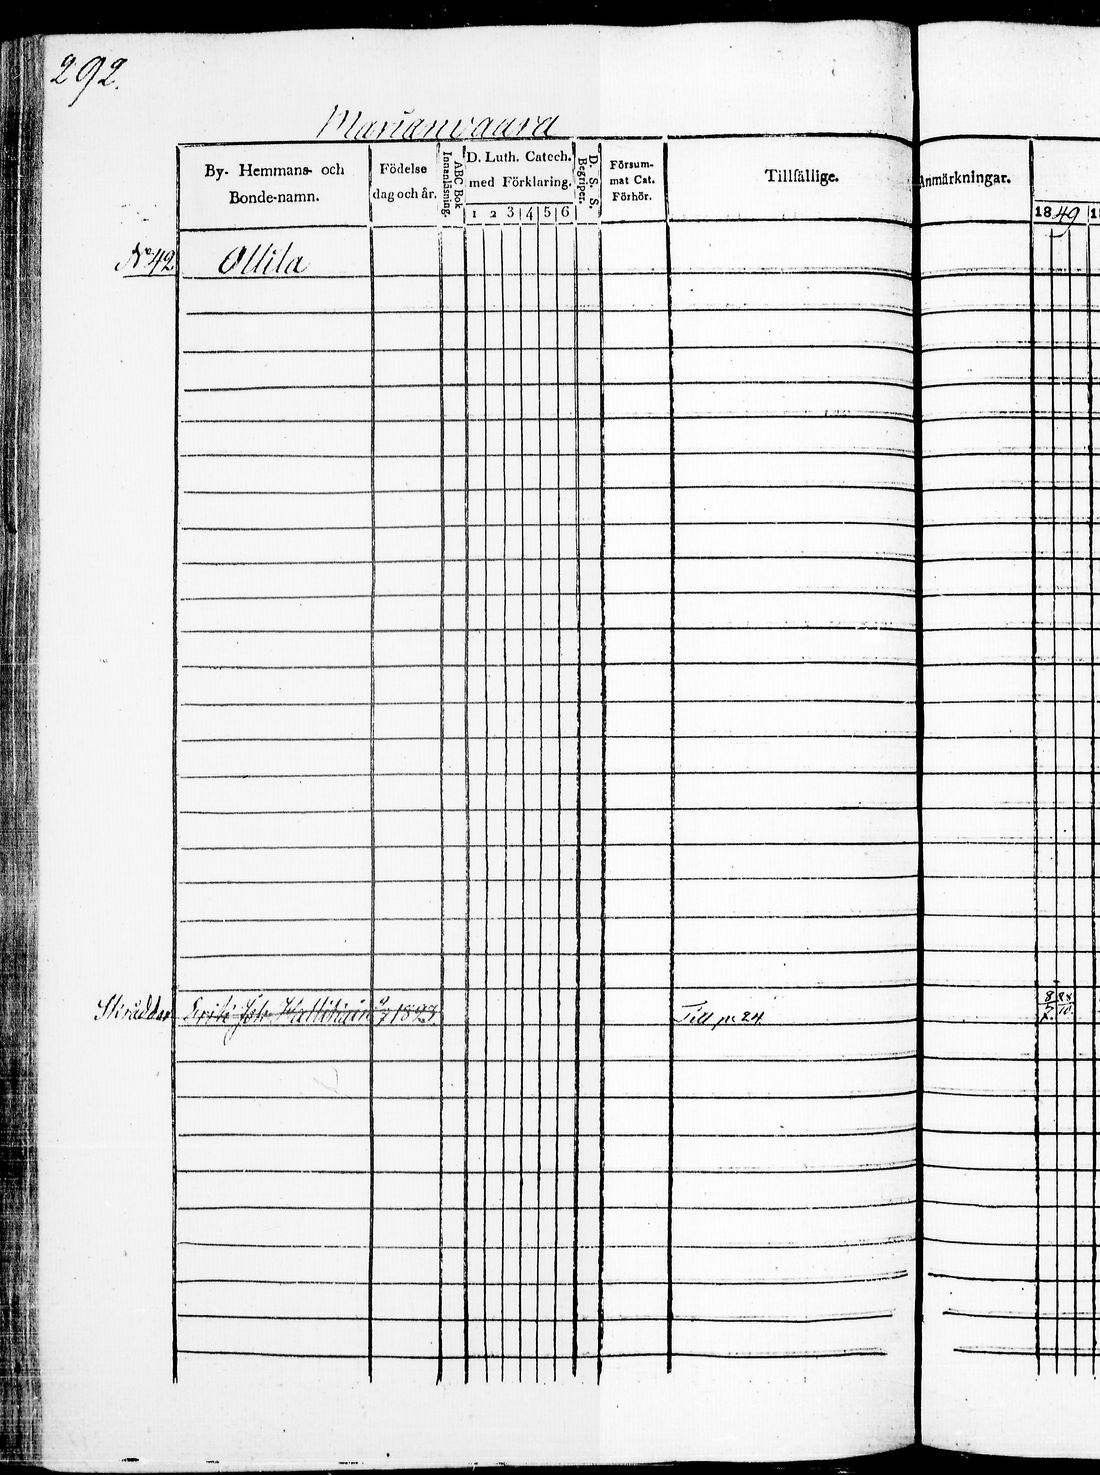 292.
Marianvaara
By- Hemmans- och Bonde-namn.
Födelse dag och år.
Innanläsning.
ABC Bok
D. Luth. Catech. med Förklaring.
1 2 3 4 5 6
D. S. S. Begriper.
Försummat Cat. Förhör.
Tillfällige.
Anmärkningar.
1849
No 42 Ollila
Skräddar 1828 Till p. 24 8/7 28/10